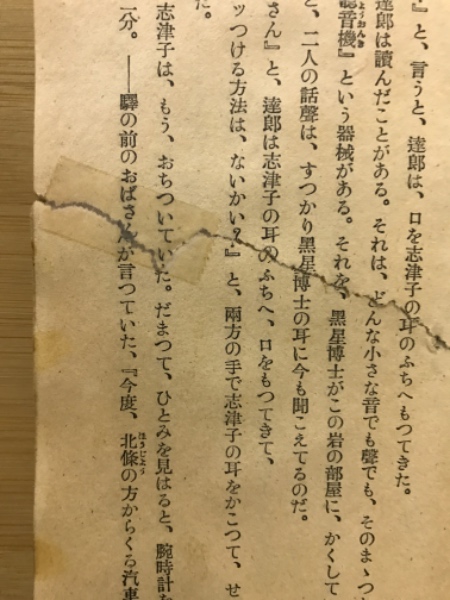 』と、言うと、達郞は、口を志津子の耳のふちへもつてきた。
達郞は讀んだことがある。それは、どんな小さな音でも聲でも、そのまゝつ
聽音機』という器械がある。それを、黑星博士がこの岩の部屋に、かくして
と、二人の話聲は、すつかり黑星博士の耳に今も聞こえてるのだ。
さん』と、達郞は志津子の耳のふちへ、口をもつてきて、
ッつける方法は、ないかい？』と、兩方の手で志津子の耳をかこつて、せ
た。
志津子は、もう、おちついていた。だまつて、ひとみを見はると、腕時計を
二分。――驛の前のおばさんが言つていた、『今度、北條の方からくる汽車